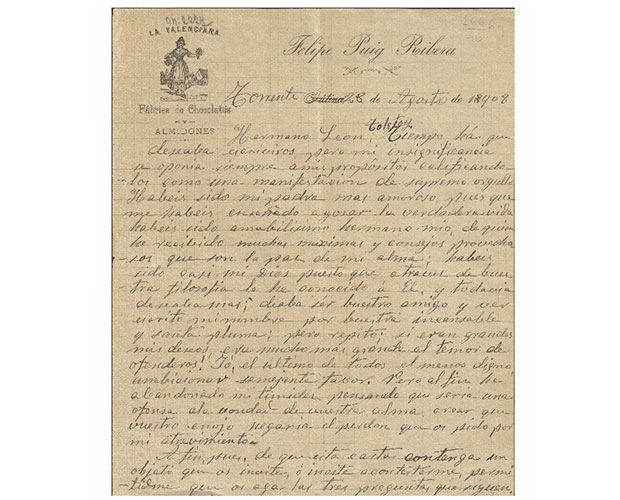 LA VALENCIANA
Felipe Puig Ribera
Fábrica de Chocolates
Torrente 28 de Agosto de 1908
ALMIDONES
Hermano Leon Tolstoy: Tiempo há que
deseaba escriviros pero mi insignificancia
se oponia siempre a mis propósitos calificando-
los como una manifestación de supremo orgullo
Habeis sido mi padre mas amoroso, pues que
me habeis enseñado a gozar la verdadera vida
habeis sido amabilisimo hermano mio, de quien
he recibido muchas maximas y consejos provecho
sos que son la paz de mi alma; habeis
sido casi mi Dios puesto que a traves de bues-
tra filosofia le he conocido á El, y todavia
deseaba mas; deseaba ser buestro amigo y ver
escrito mi nombre por buestra incansable
y santa pluma; pero repito: si eran grandes
mis deseos, era mucho mas grande el temor de
ofenderos! Yo, el último de todos el menos digno
ambicionar semejante favor. Pero al fin he
abandonado mi timidez pensando que seria una
ofensa a la bondad de vuestra alma, creer que
vuestro enojo negaria el perdon que os pido por
mi atrevimiento.
A fin, pues, de que esta carta contenga un
objeto que os invite, ó incite a contestarme, permi
tidme que os aga las tres preguntas que siguen,